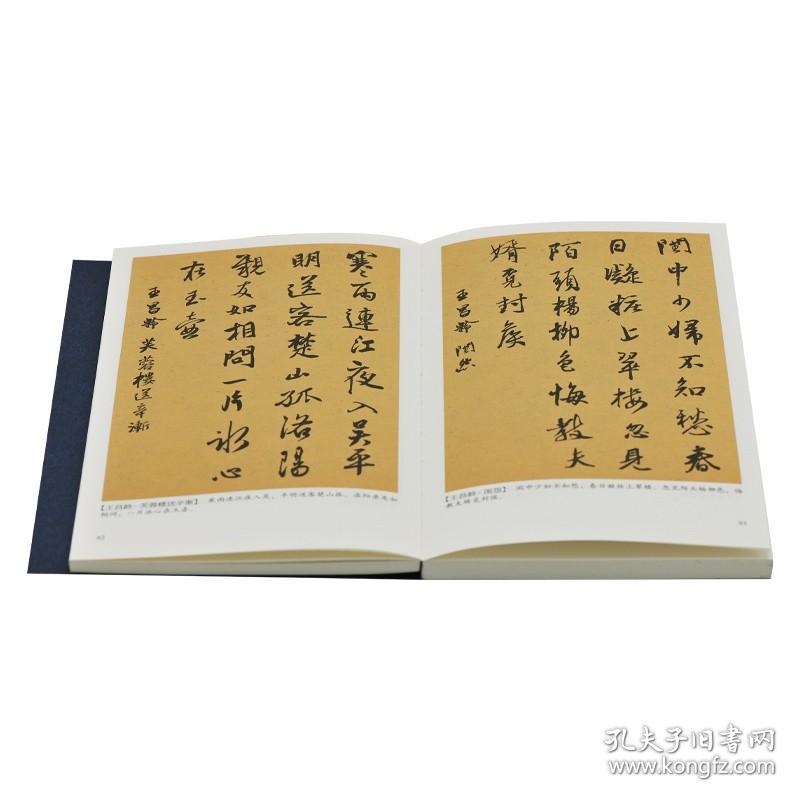 寒雨連江夜入吴平
明送客楚山孤洛陽
親友如相問一片冰心
在玉壺
王昌龄 芙蓉樓送辛漸
【王昌龄·芙蓉楼送辛渐】 寒雨连江夜入吴，平明送客楚山孤。洛阳亲友如
相问，一片冰心在玉壶。
82
閨中少婦不知愁春
日凝妝上翠樓忽見
陌頭楊柳色悔教夫
婿覓封侯
王昌龄 閨怨
【王昌龄·闺怨】 闺中少妇不知愁，春日凝妆上翠楼。忽见陌头杨柳色，悔
教夫婿觅封侯。
83
孔夫子旧书网
www.kongfz.com